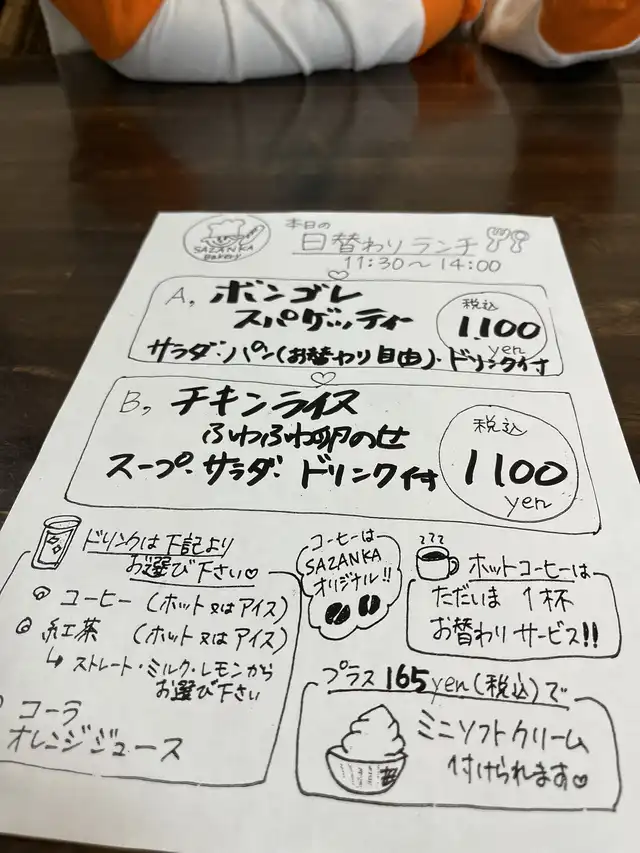 SAZANKA
Bakery
本日の
日替わりランチ
11:30〜14:00
A, ボンゴレ
スパゲッティー
サラダ・パン(お替わり自由)・ドリンク付
税込
1.100
yen
B, チキンライス
ふわふわ卵のせ
スープ・サラダ・ドリンク付
税込
1100
yen
ドリンクは下記より
お選び下さい♡
コーヒー (ホット又はアイス)
紅茶 (ホット又はアイス)
↳ ストレート・ミルク・レモンから
お選び下さい
コーラ
オレンジジュース
コーヒーは
SAZANKA
オリジナル!!
ホットコーヒーは
ただいま 1杯
お替わりサービス!!
プラス165yen(税込)で
ミニソフトクリーム
付けられます♡